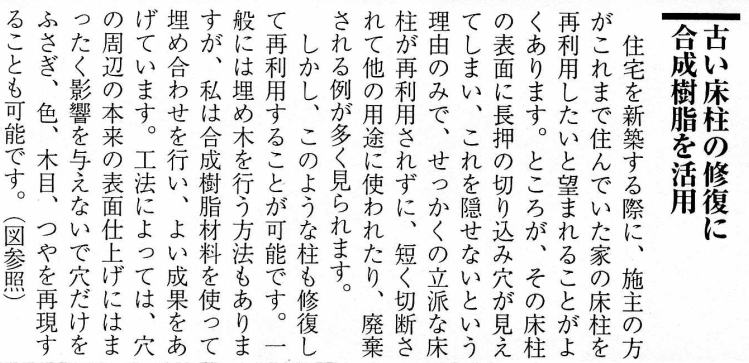 古い床柱の修復に
合成樹脂を活用
住宅を新築する際に、施主の方
がこれまで住んでいた家の床柱を
再利用したいと望まれることがよ
くあります。ところが、その床柱
の表面に長押の切り込み穴が見え
てしまい、これを隠せないという
理由のみで、せっかくの立派な床
柱が再利用されずに、短く切断さ
れて他の用途に使われたり、廃棄
される例が多く見られます。
しかし、このような柱も修復し
て再利用することが可能です。一
般には埋め木を行う方法もありま
すが、私は合成樹脂材料を使って
埋め合わせを行い、よい成果をあ
げています。工法によっては、穴
の周辺の本来の表面仕上げにはま
ったく影響を与えないで穴だけを
ふさぎ、色、木目、つやを再現す
ることも可能です。(図参照)